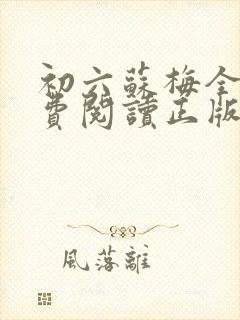 初六蘇梅全
費閱讀正版
風落離